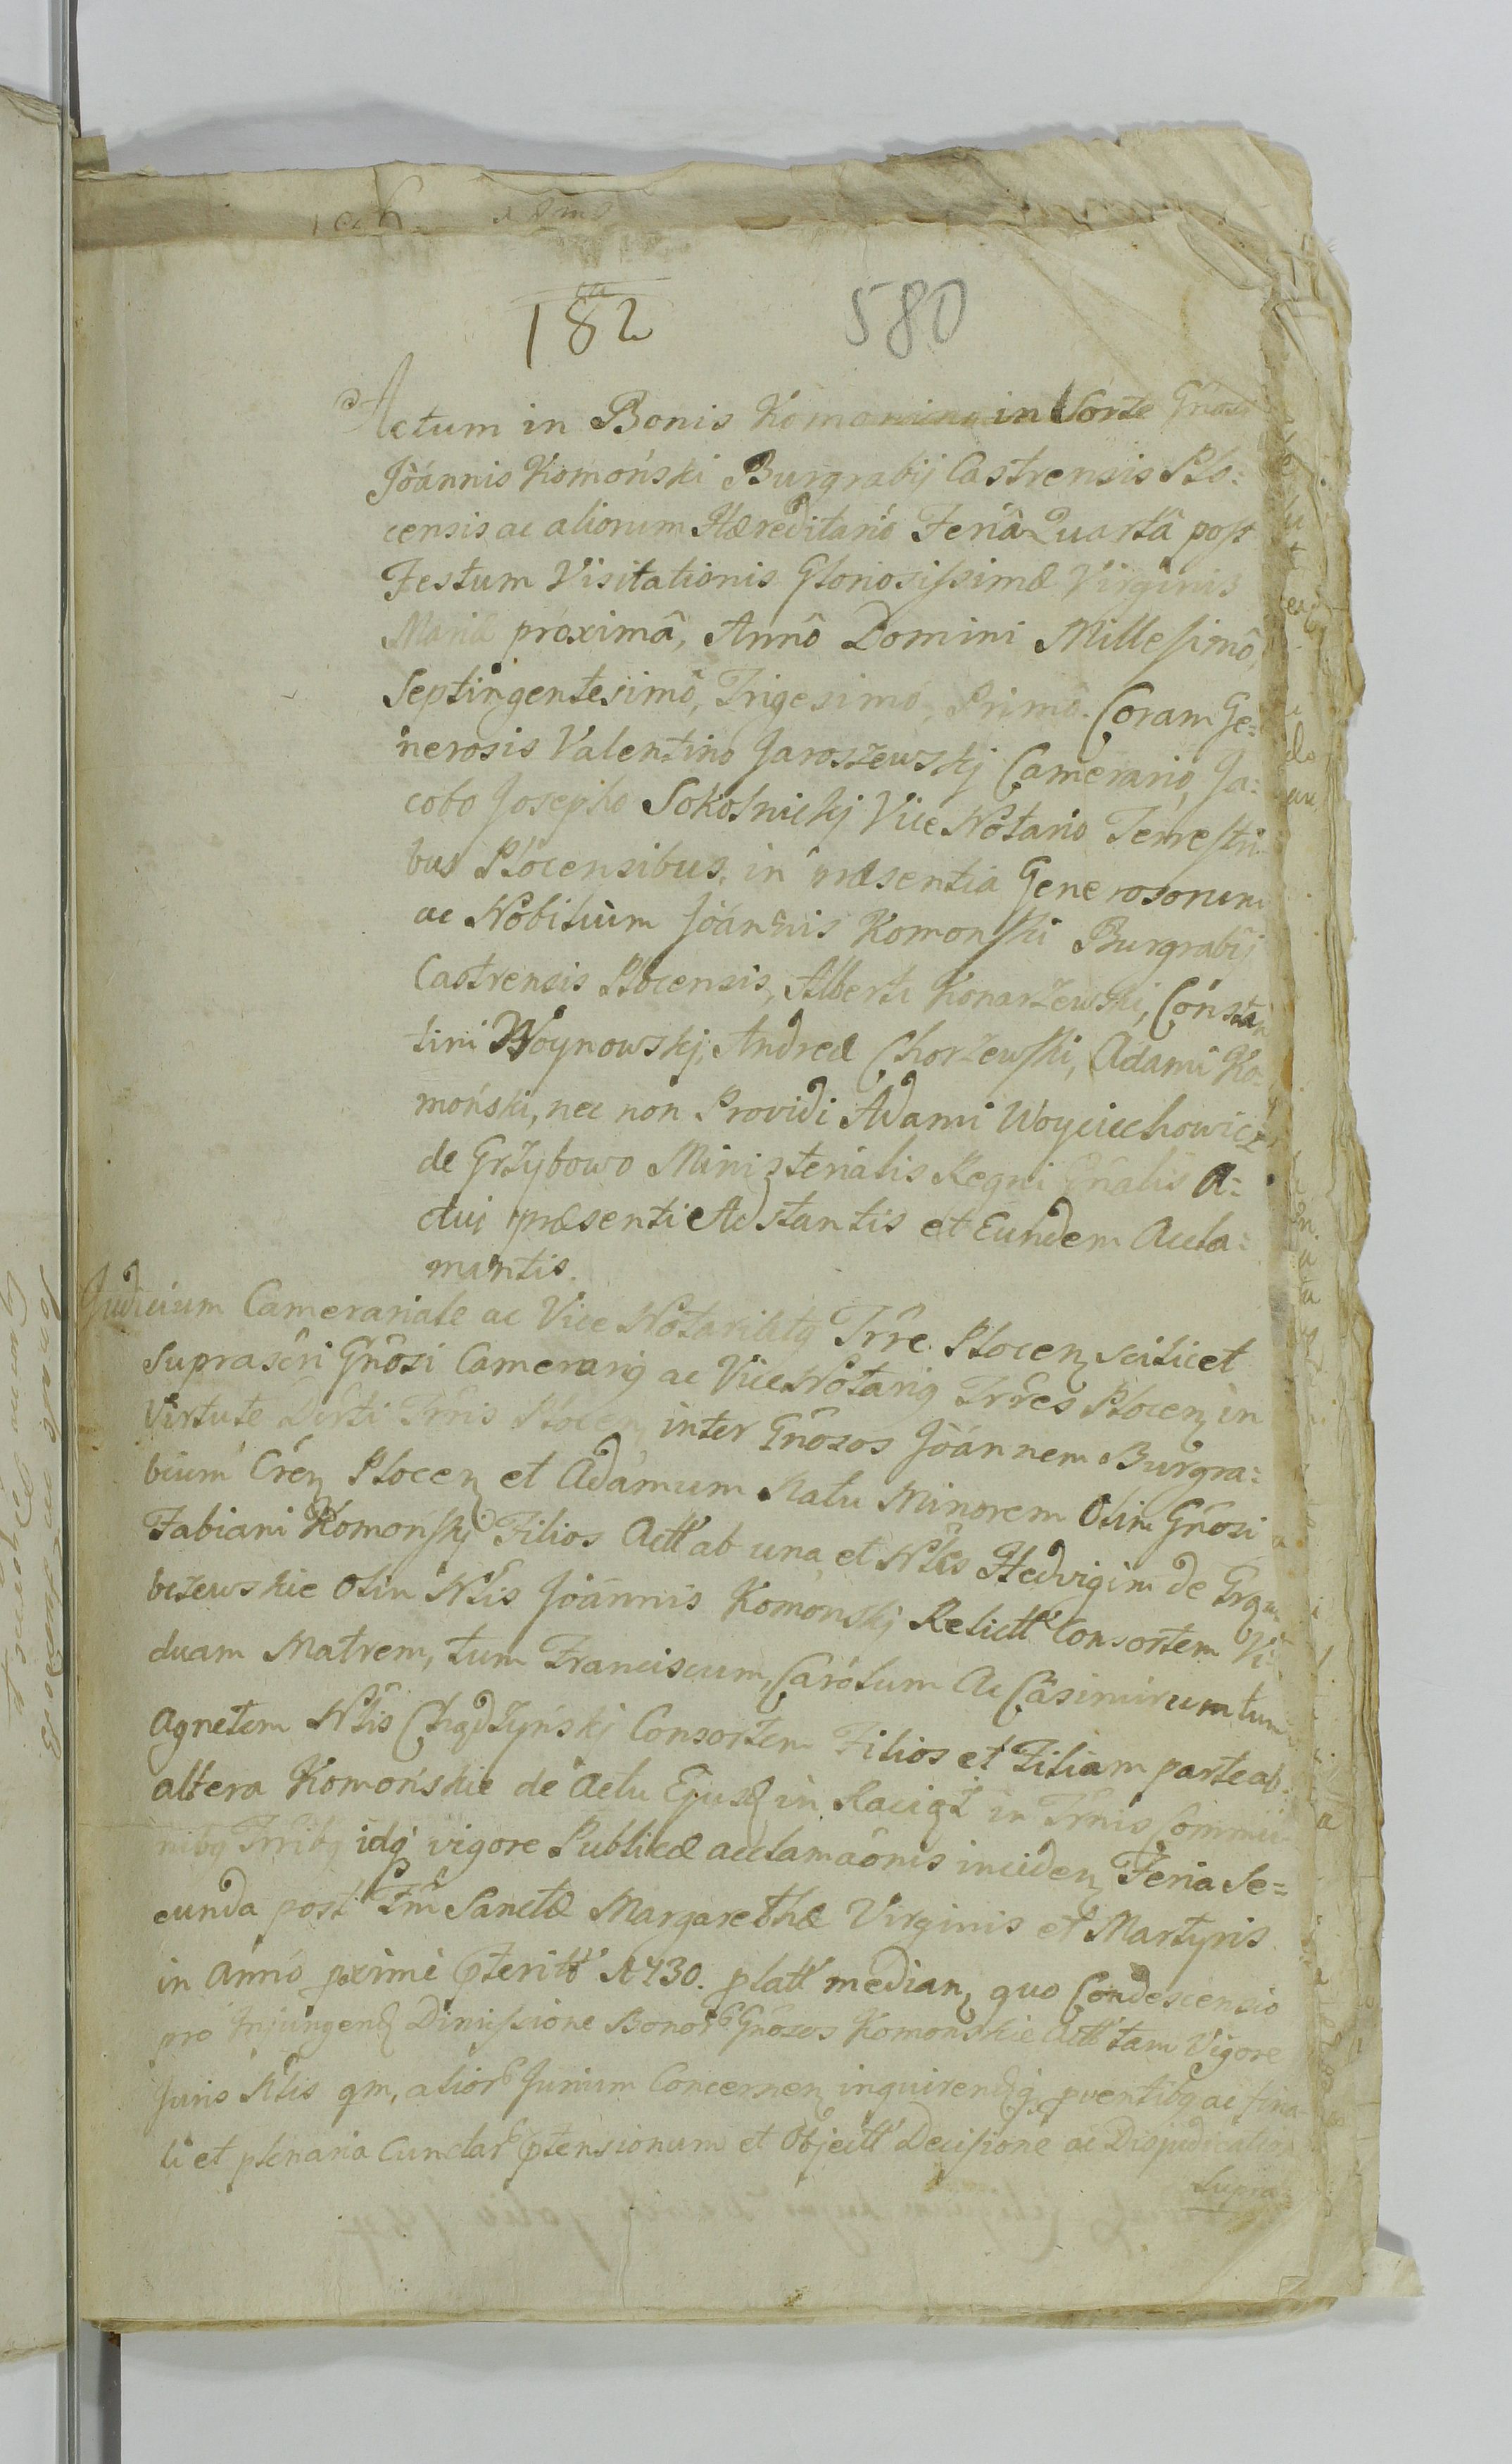 182
580
Actum in Bonis Komonino in Sorte Gnosi
Jòánnis Komoński Burgrabij Castrensis Plo:
censis ac aliorum Hæreditariô Feriâ Quartâ post
Festum Visitationis Gloriosissimæ Virginis
Mariæ proximâ, Annô Domini Millesimô,
Septingentesimô, Trigesimô, Primô. Coram Ge:
nerosis Valentino Jaroszewskj Camerario, Ja:
cobo Josepho Sokolnickj Vice Notario Terrestri
bus Plocensibus, in præsentia Generosorum
ac Nobilium Jòánnis Komonski Burgrabij
Castrensis Plocensis, Alberti Konarzewski, Constan
tini Woynowskj, Andreæ Chorzewski, Adami Ko:
moński, nec non Providi Adami Woyciechowicz
de Grzybowo Ministerialis Regni Gnalis A:
ctui præsenti Adstantis et Eundem Accla:
mantis.
Judicium Camerariale ac Vice Notarile Trre Plocen scilicet
Suprascri Gnosi Camerarig ac Vice Notarig Trres Plocen in
Virtute Dcrti Trris Plocen inter Gnosos Jòánnem Burgra:
bium Cren Plocen et Adamum Natu Minorem Olim Gnosi
Fabiani Komonskj Filios Actt ab una et Nlis Hedvigim de
bczewskie Olim Nlis Jòánnis Komonskj Relictt Consortem Vi:
duam Matrem, tum Franciscum, Carolum Ac Casimirum tum
Agnetem Nlis Chądzyńskj Consortem Filios et Filiam parte ab
altera Komońskie de Actu Ejusd in Raciąż in Trris Commu
nibg Trribg idq vigore Publicæ acclamaonis inciden Feria Se=
cunda post Fm Sanctæ Margarethæ Virginis et Martyris
in Annô pximè pteritt 1730. platt median quo Condescensio
pro Injungend Dimissione Bonor Gnosos Komonskie Actt tam Vigore
Juris Nlis qm, alior Jurium Concernen inquirendq pventibg ac fina
li et plenaria Cunctar ptensionum et Objectt Decisione ac Dijudicatio
Supra